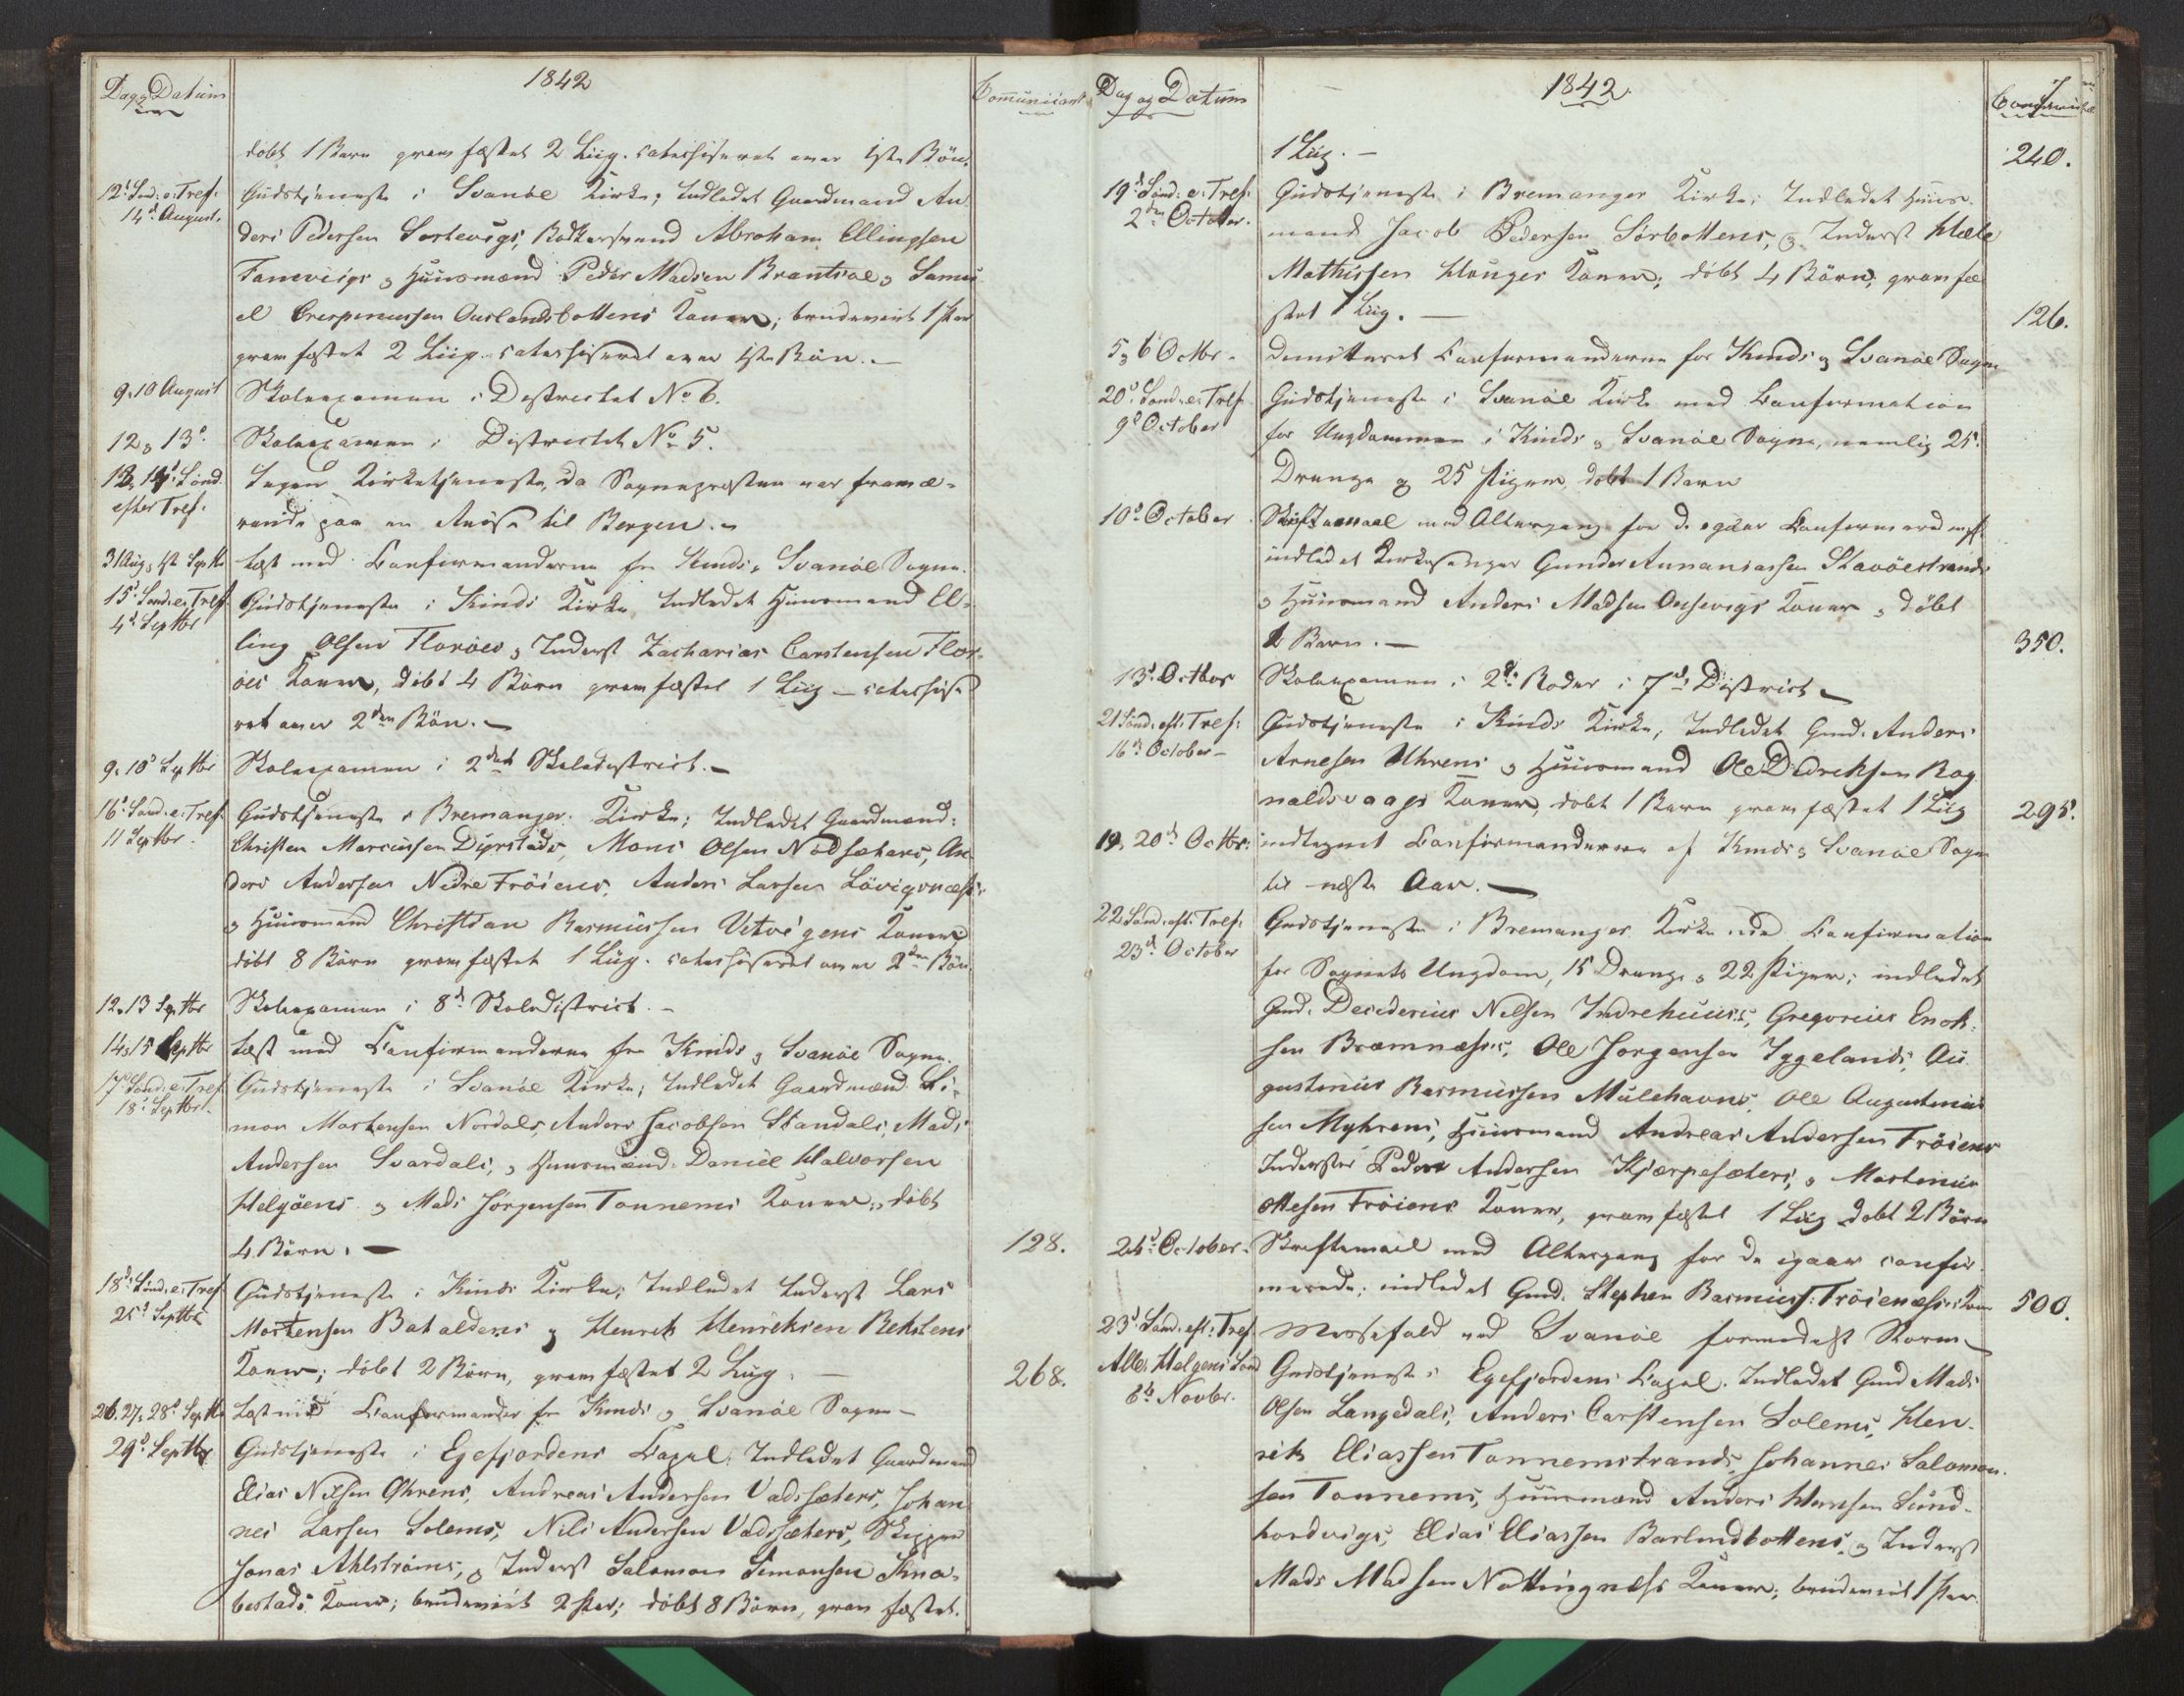 Dag og Datum
1842
Communicant
døbt 1 Barn græsfæstet 2 Liig. catechiseret over 1ste Bøn.
12te Sønd. e. Tref.
14de August.
Gudstjeneste i Svanøe Kirke; Indledet Gaardmand An
ders Pedersen Sortevigs, Bødkersvend Abraham Ellingsen
Tanevigs og Huusmænd Peder Madsen Brantsøe og Samu
el Crespinussen Ouslandsbottens Koner; brudeviet 1 Par
græsfæstet 2 Liig. catechiseret over 1ste Bøn. –
9, 10 August
Skoleexamen i Districtet No 6.
12 og 13de
Skoleexamen i Districtet No 5.
13, 14de Sønd.
efter Tref.
Ingen Kirketjeneste, da Sognepræsten var fravæ-
rende paa en Reise til Bergen. –
31 Aug og 1ste Septbr
Læst med Confirmanderne fra Kinds og Svanøe Sogne.
15de Sønd. e. Tref.
4de Septbr
Gudstjeneste i Kinds Kirke, Indledet Huusmand El-
ling Olsen Florøes og Inderst Zacharias Carstensen Flor-
øes Koner, døbt 4 Børn græsfæstet 1 Liig – catechise
ret over 2den Bøn. –
9, 10de Septbr
Skoleexamen i 2det Skoledistrict. –
16de Sønd. e. Tref.
11 Septbr.
Gudstjeneste i Bremanger Kirke; Indledet Gaardmænd:
Christen Marcussen Dyrstads, Mons Olsen Nødsæthers, An
ders Andersen Nedre Frøiens, Anders Larsen Løvigsnæss
og Huusmand Christian Rasmussen Vetvigens Koner
døbt 8 Børn græsfæstet 1 Liig. catechiseret over 2den Bøn
12, 13 Septbr
Skoleexamen i 8de Skoledistrict. –
14, 15 Septbr
Læst med Confirmanderne fra Kinds og Svanøe Sogne.
17de Sønd. e. Tref
18de Septbr.
Gudstjeneste i Svanøe Kirke; Indledet Gaardmænd Si-
mon Mortensen Nordals, Anders Jacobsen Standals, Mads
Andersen Svardals, og Huusmænd Daniel Halvorsen
Helgøens og Mads Jørgensen Tonnems Koner, døbt
4 Børn. –
128.
18de Sønd. e. Tref
25de Septbr
Gudstjeneste i Kinds Kirke; Indledet Inderst Lars
Mortensen Batalders og Henrik Henriksen Rekstens
Koner; døbt 2 Børn, græsfæstet 2 Liig. –
268.
26. 27, 28de Septbr
Læst med Confirmander fra Kinds og Svanøe Sogne –
29de Septbr
Gudstjeneste i Egefjordens Capel; Indledet Gaardmænd
Elias Nilsen Øhrens, Andreas Andersen Vadsæthers, Johan
nes Larsen Solems, Nils Andersen Vadsæthers, Skipper
Jonas Ahlstrøms, og Inderst Salomon Simonsen Kna-
bestads Koner; brudeviet 2 Par; døbt 8 Børn, græsfæstet.
Dag og Datum
1842
7
1 Liig. –
240.
19de Sønd. e. Tref.
2den October.
Gudstjeneste i Bremanger Kirke; Indledet Huus-
mand Jacob Pedersen Sørbottens, og Inderst
Mathissen Hauges Koner; døbt 4 Børn, græsfæ
stet 1 Liig. –
126.
5 og 6 Octbr.
demitteret Confirmanderne for Kinds og Svanøe Sogne
20de Sønd. e. Tref
9de October
Gudstjeneste i Svanøe Kirke med Confirmation
for Ungdommen i Kinds og Svanøe Sogne, nemlig 25
Drenge og 25 Piger, døbt 1 Barn
10de October
Skriftemaal med Altergang for de igaar Confirmerede
indledet Kirkesanger Gunder Annaniassen Stavøestrands
og Huusmand Anders Madsen Oksevigs Koner, døbt
1 Barn. –
350.
13de Octbor
Skoleexamen i 2de Roder i 7de District –
21 Sønd. eft. Tref:
16de October –
Gudstjeneste i Kinds Kirke, Indledet Gmd. Anders
Arnesen Uhrens og Huusmand Ole Didriksen Rag
naldsvaags Koner, døbt 1 Barn græsfæstet 1 Liig
295.
19, 20de Octbr:
indtegnet Confirmanderne af Kinds og Svanøe Sogne
til næste Aar. –
22 Sønd. eft. Tref:
23de October
Gudstjeneste i Bremanger Kirke med Confirmation
for Sognets Ungdom, 15 Drenge og 22 Piger; indledet
Gmd. Desiderius Nilsen Indrehuus, Gregorius Enok-
sen Bremnæss, Ole Jørgensen Rygelands, Au
gustinus Rasmussen Mulehavns, Ole Augustinus
sen Myhrens, Huusmand Andreas Andersen Frøiens
Inderster Peder Andersen Kjærpesæters, og Martinus
Ottesen Frøiens Koner, græsfæstet 1 Liig døbt 2 Børn
24de October.
Skriftemaal med Altergang for de igaar confir
merede; indledet Gmd. Stephen Rasmuss: Frøienæss Kone
500.
23de Sønd. eft. Tref.
Messefald ved Svanøe formedelst Storm –
Alle Helgens Sønd
6te Novbr.
Gudstjeneste i Egefjordens Capel. Indledet Gmd Mads
Olsen Langedals, Anders Carstensen Solems, Hen-
rik Eliassen Tonnemstrands, Johannes Salomon-
sen Tonnems, Huusmænd Anders Hansen Sund-
hordvigs, Elias Eliassen Barlindbottens, og Inderst
Mads Madsen Nøttingnæss Koner; brudeviet 1 Par